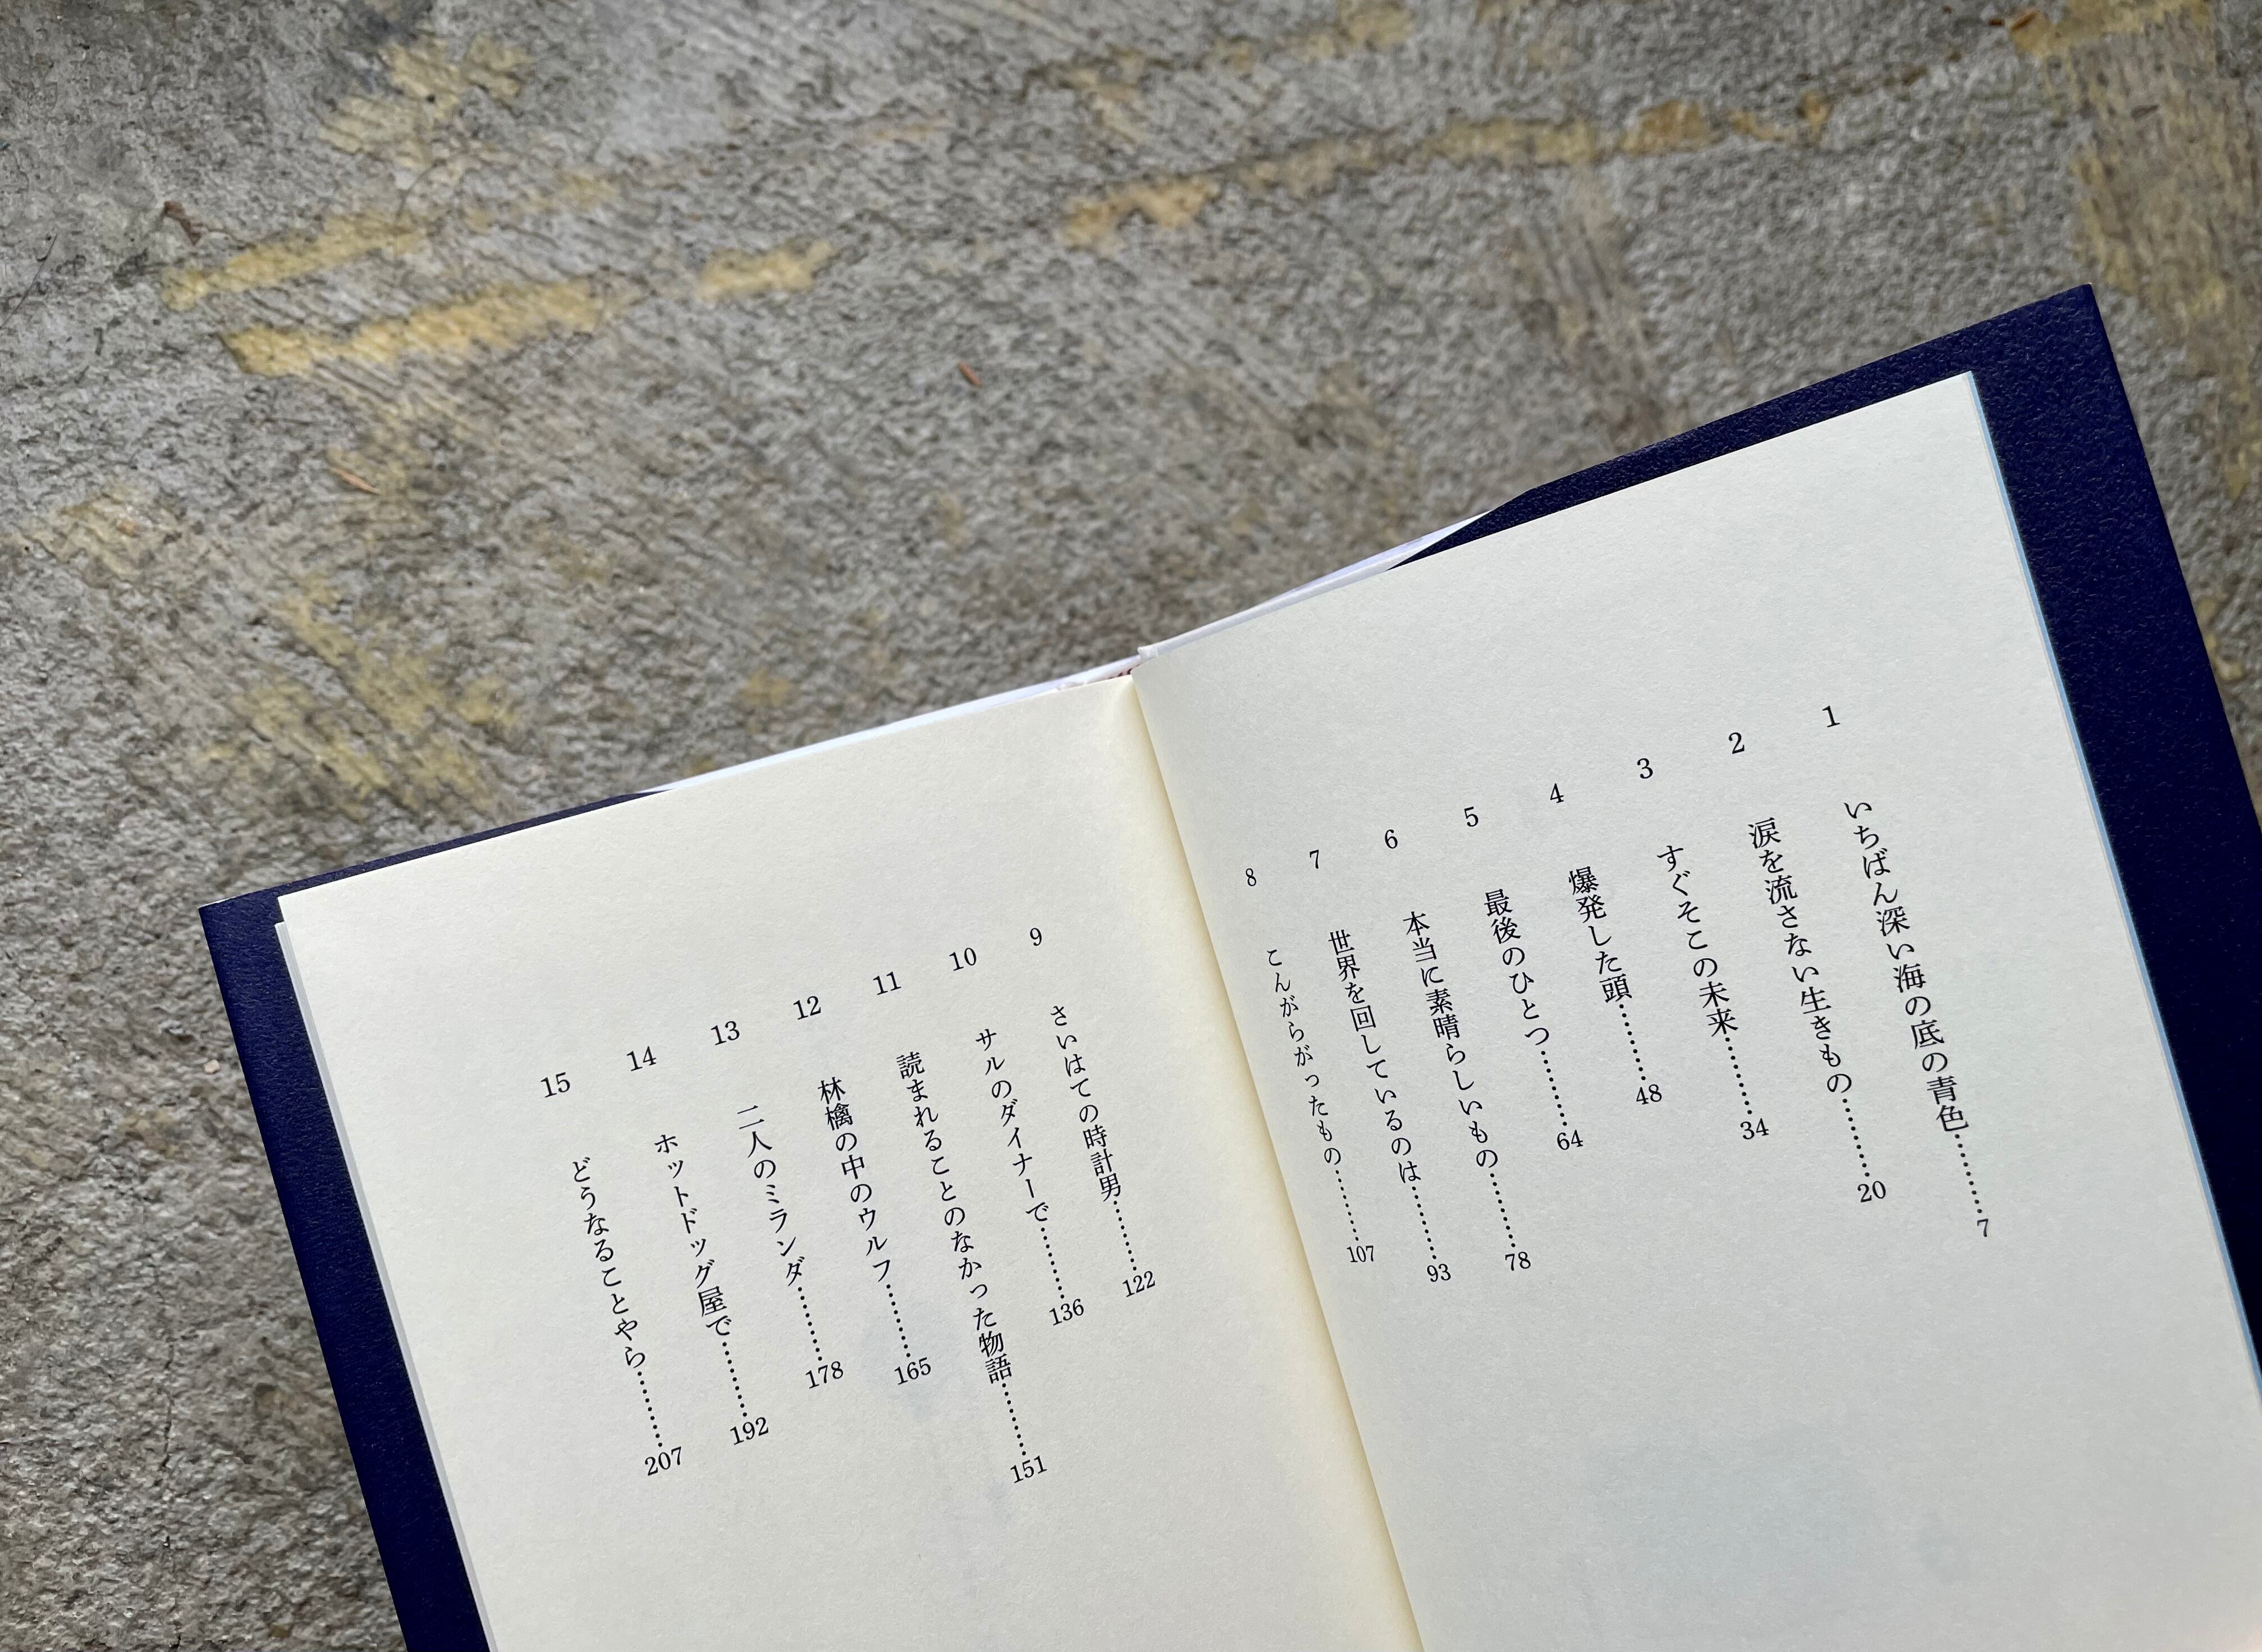 1 いちばん深い海の底の青色………7
2 涙を流さない生きもの………20
3 すぐそこの未来………34
4 爆発した頭………48
5 最後のひとつ………64
6 本当に素晴らしいもの………78
7 世界を回しているのは………93
8 こんがらがったもの………107
9 さいはての時計男………122
10 サルのダイナーで………136
11 読まれることのなかった物語………151
12 林檎の中のウルフ………165
13 二人のミランダ………178
14 ホットドッグ屋で………192
15 どうなることやら………207